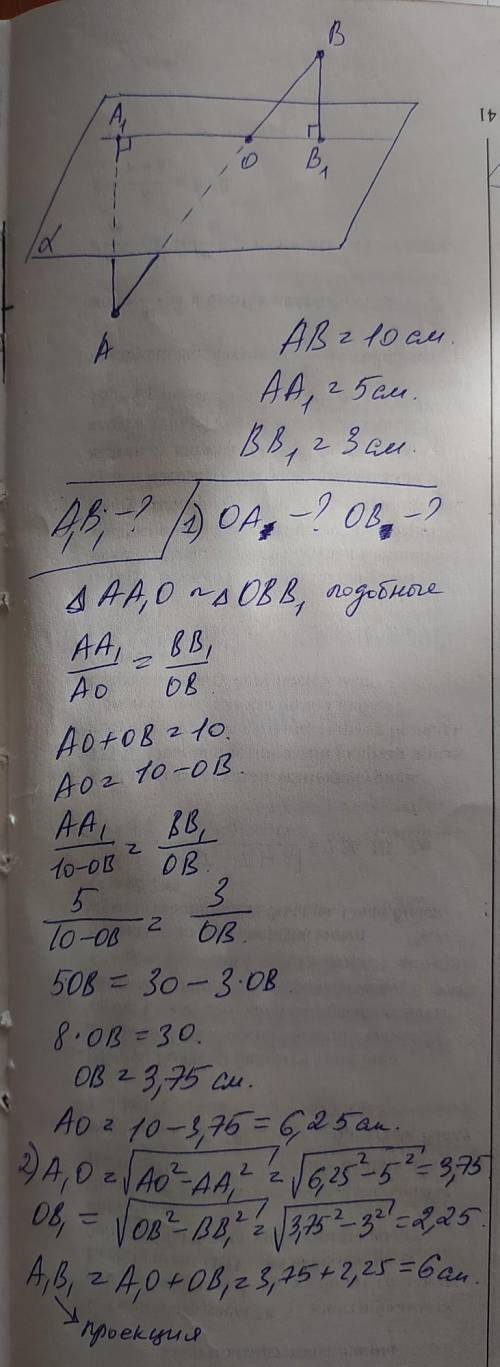 B
A₁
O
B₁
α
A
41
AB = 10 см.
AA₁ = 5 см.
BB₁ = 3 см.
A₁B₁ - ? 1) OA - ? OB - ?
△AA₁O ~ △OBB₁ подобные
AA₁/AO = BB₁/OB
AO + OB = 10.
AO = 10 - OB.
AA₁/10-OB = BB₁/OB.
5/10-OB = 3/OB.
5OB = 30 - 3·OB
8·OB = 30.
OB = 3,75 см.
AO = 10 - 3,75 = 6,25 см.
2) A₁O = √AO² - AA₁² = √6,25² - 5² = 3,75
OB₁ = √OB² - BB₁² = √3,75² - 3² = 2,25.
A₁B₁ = A₁O + OB₁ = 3,75 + 2,25 = 6 см.
проекция